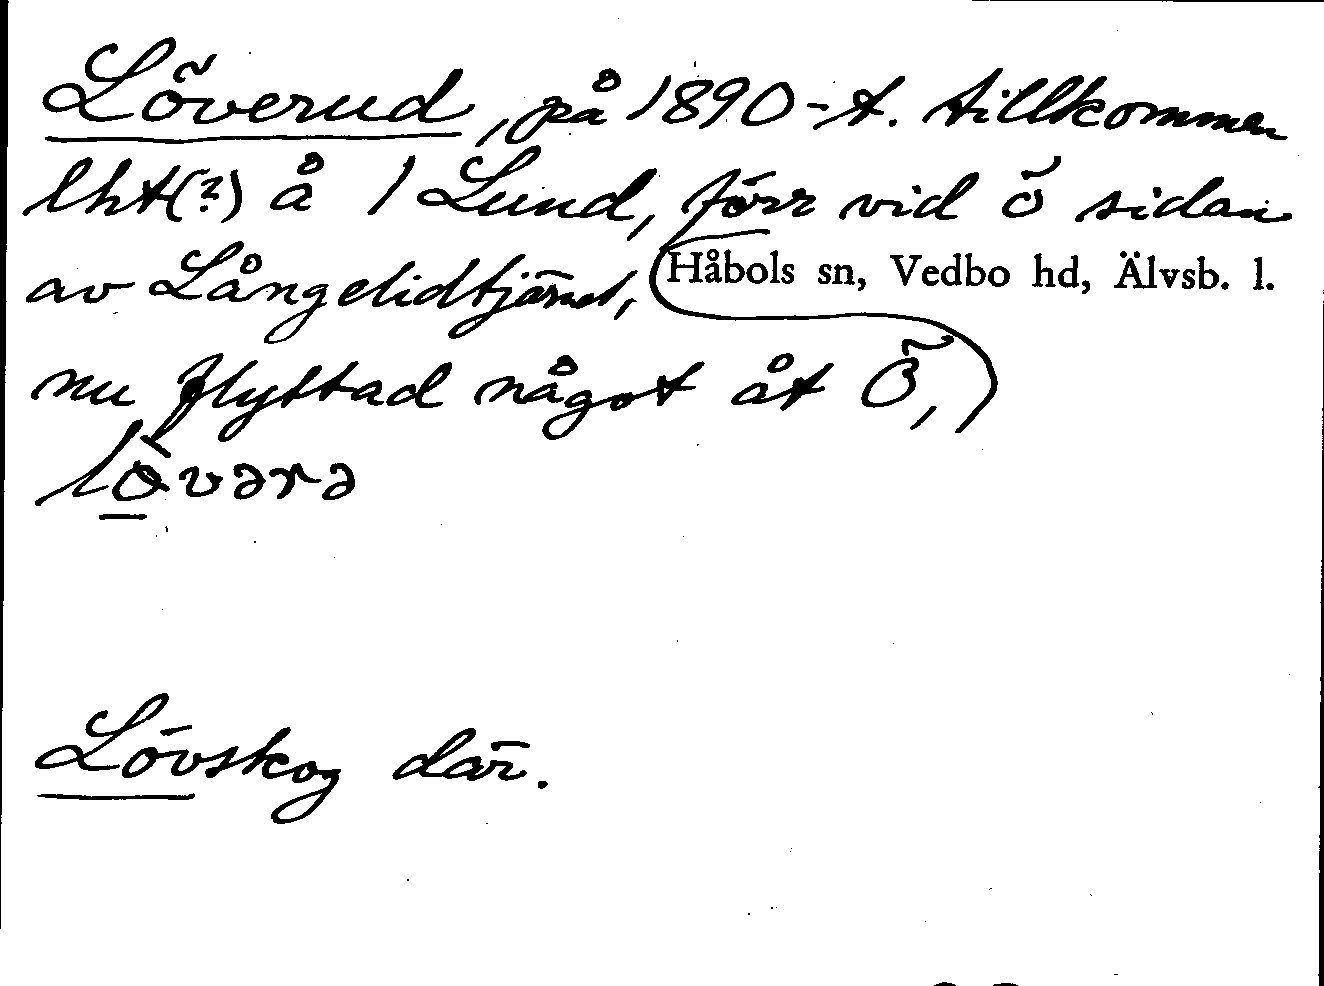 Löverud, på 1890-t. tillkommen
lht(?) å 1 Lund, förr vid ö sidan
av Långelidtjärnet,
Håbols sn, Vedbo hd, Älvsb. l.
nu flyttad något åt Ö,)
lò̱vərə
Lövskog där.